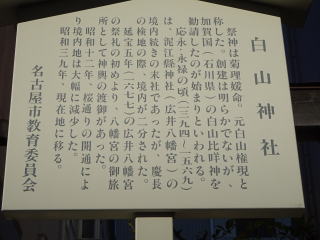 白山神社
祭神は菊理媛命。元白山権現と
称した。創建は明らかでないが、
加賀国（石川県）の白山比咩神を
勧請したのが始まりといわれる。
応永・永禄の頃（一三九四〜一五六九）
は、泥江縣神社（広井八幡宮）の
境内続きの末社であったが、慶長
の検地の際、境内が二分された。
延宝五年（一六七七）の広井八幡宮
の祭礼の初めより、八幡宮の御旅
所として神輿の渡御があった。
昭和十二年、桜通りの開通によ
り境内地は大幅に減少した。
昭和三九年、現在地に移る。
名古屋市教育委員会